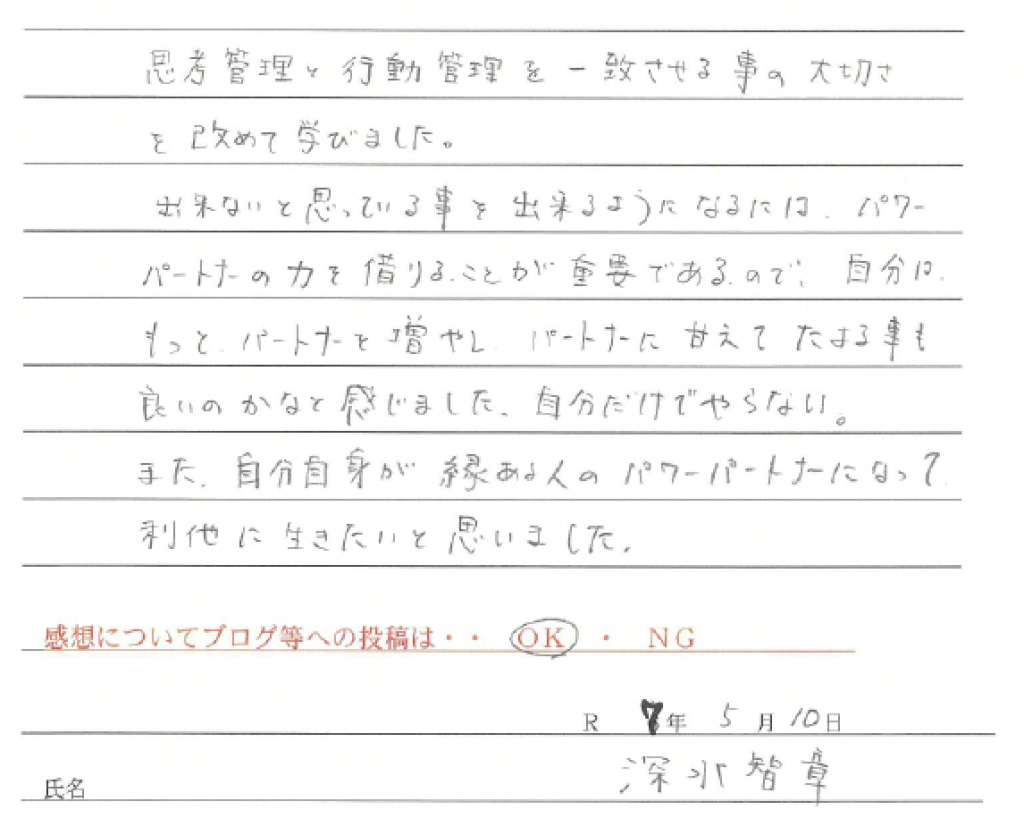 思考管理と行動管理を一致させる事の大切さ
を改めて学びました。
出来ないと思っている事を出来るようになるには、パワー
パートナーの力を借りることが重要であるので、自分は、
もっと、パートナーを増やし、パートナーに甘えてたよる事も
良いのかなと感じました、自分だけでやらない。
また、自分自身が縁ある人のパワーパートナーになって
利他に生きたいと思いました。
感想についてブログ等への投稿は・・ OK ・ NG
R 7年 5月10日
氏名 深水智章